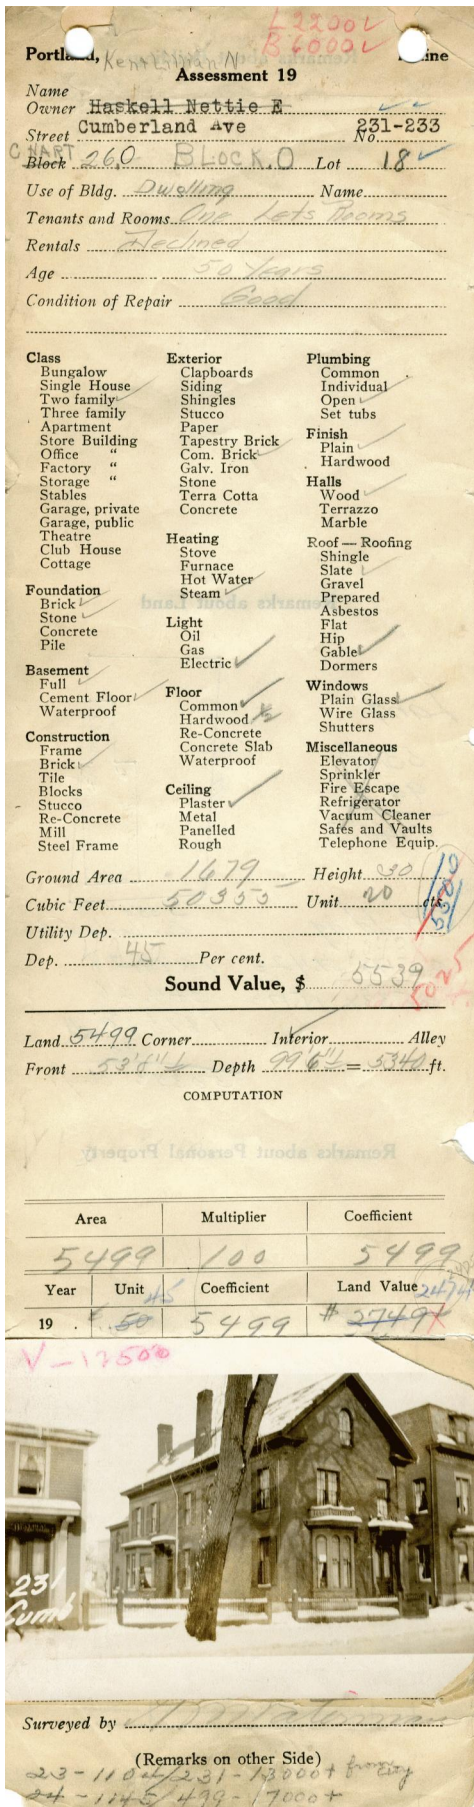 L 2200
B 6000
Portland, Maine
Assessment 19
Name
Owner Haskell Nettie E
Street Cumberland Ave No. 231-233
CHART
Block 26,0 BLOCK.O Lot 18
Use of Bldg. Dwelling Name
Tenants and Rooms One Lets Rooms
Rentals Declined
Age 50 Years
Condition of Repair Good
Class
Bungalow
Single House
Two family
Three family
Apartment
Store Building
Office "
Factory "
Storage "
Stables
Garage, private
Garage, public
Theatre
Club House
Cottage
Foundation
Brick
Stone
Concrete
Pile
Basement
Full
Cement Floor
Waterproof
Construction
Frame
Brick
Tile
Blocks
Stucco
Re-Concrete
Mill
Steel Frame
Exterior
Clapboards
Siding
Shingles
Stucco
Paper
Tapestry Brick
Com. Brick
Galv. Iron
Stone
Terra Cotta
Concrete
Heating
Stove
Furnace
Hot Water
Steam
Light
Oil
Gas
Electric
Floor
Common
Hardwood ½
Re-Concrete
Concrete Slab
Waterproof
Ceiling
Plaster
Metal
Panelled
Rough
Plumbing
Common
Individual
Open
Set tubs
Finish
Plain
Hardwood
Halls
Wood
Terrazzo
Marble
Roof — Roofing
Shingle
Slate
Gravel
Prepared
Asbestos
Flat
Hip
Gable
Dormers
Windows
Plain Glass
Wire Glass
Shutters
Miscellaneous
Elevator
Sprinkler
Fire Escape
Refrigerator
Vacuum Cleaner
Safes and Vaults
Telephone Equip.
Ground Area 1679 Height 30
Cubic Feet 50355 Unit 20 cts.
Utility Dep.
Dep. 45 Per cent.
Sound Value, $ 5539
5025
Land 5499 Corner Interior Alley
Front Depth = 5340 ft.
COMPUTATION
Area Multiplier Coefficient
5499 100 5499
Year Unit Coefficient Land Value
45
19 . $ 50 5499 $ 2749
V-12500
231
Cumb
Surveyed by
(Remarks on other Side)
23-1104/231-13000+ from City
24-1145/499-17000+